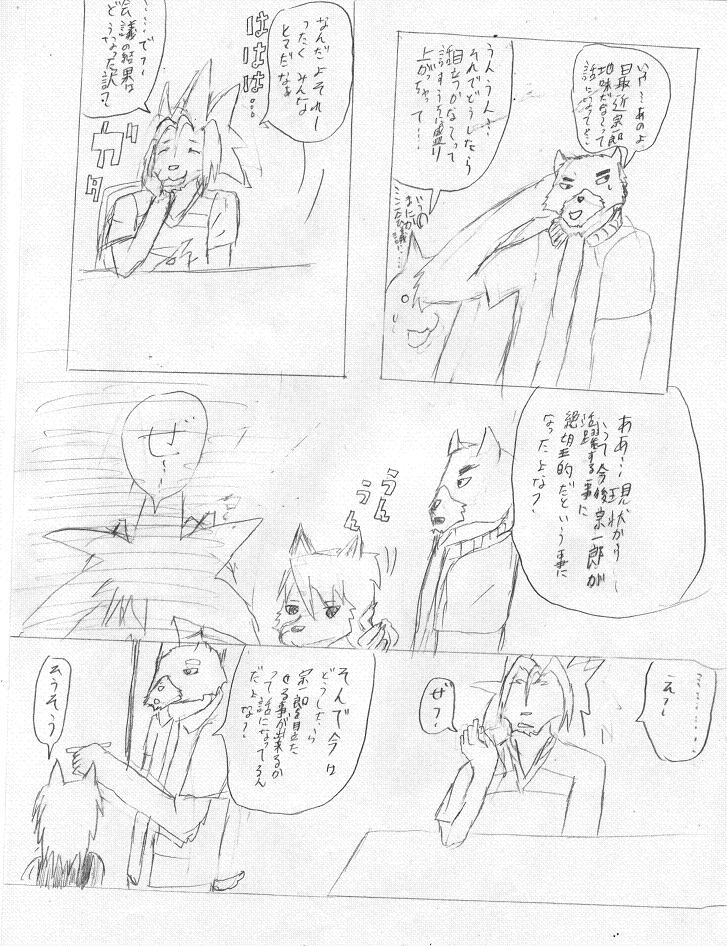 いや…あのよ
最近宗一郎
地味だなって
話になってて…
うんうん…
それでどうしたら
目立つかなって
話すうちに盛り
上がっちゃって…
いつの
まにか
なんだよそれー
ったく みんな
とてだなぁ
ははは…
……でっ
会議の結果は
どうなった訳？
ガタ
ああ…現状から
いって今後宗一郎が
活躍する事は
絶望的だという事に
なったよな？
うん
うん
ぜ〜
え？
ぜ？
そんで今は
どうしたら
宗一郎を目立た
せる事が出来るか
って話になってるん
だよな？
そうそう